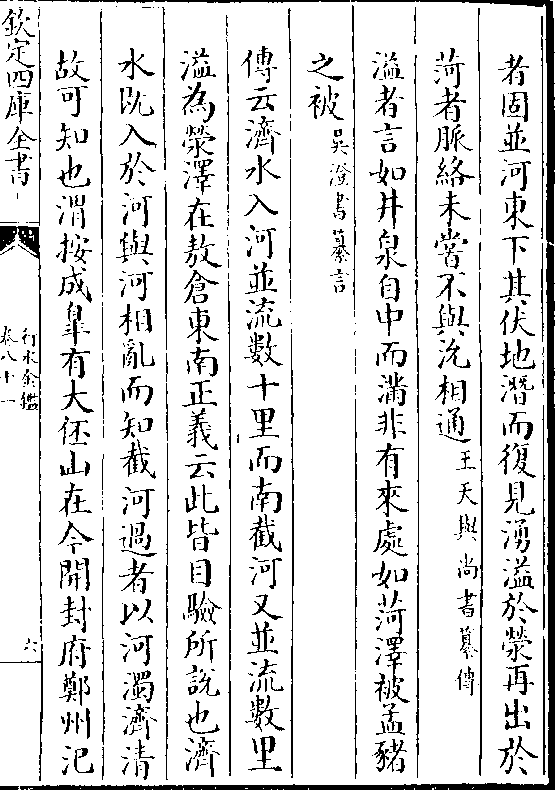 者固並河東下其伏地潛而復見湧溢於滎再出於
菏者脈絡未嘗不與沇相通王天與尚書纂傳
溢者言如井泉自中而滿非有來處如菏澤被孟豬
之被吳澄書纂言
傳云濟水入河並流數十里而南截河又並流數里
溢為滎澤在敖倉東南正義云此皆目驗所說也濟
水既入於河與河相亂而知截河過者以河濁濟清
故可知也渭按成臯有大伾山在今開封府鄭州汜
欽定四庫全書
行水金鑑
卷八十一
六